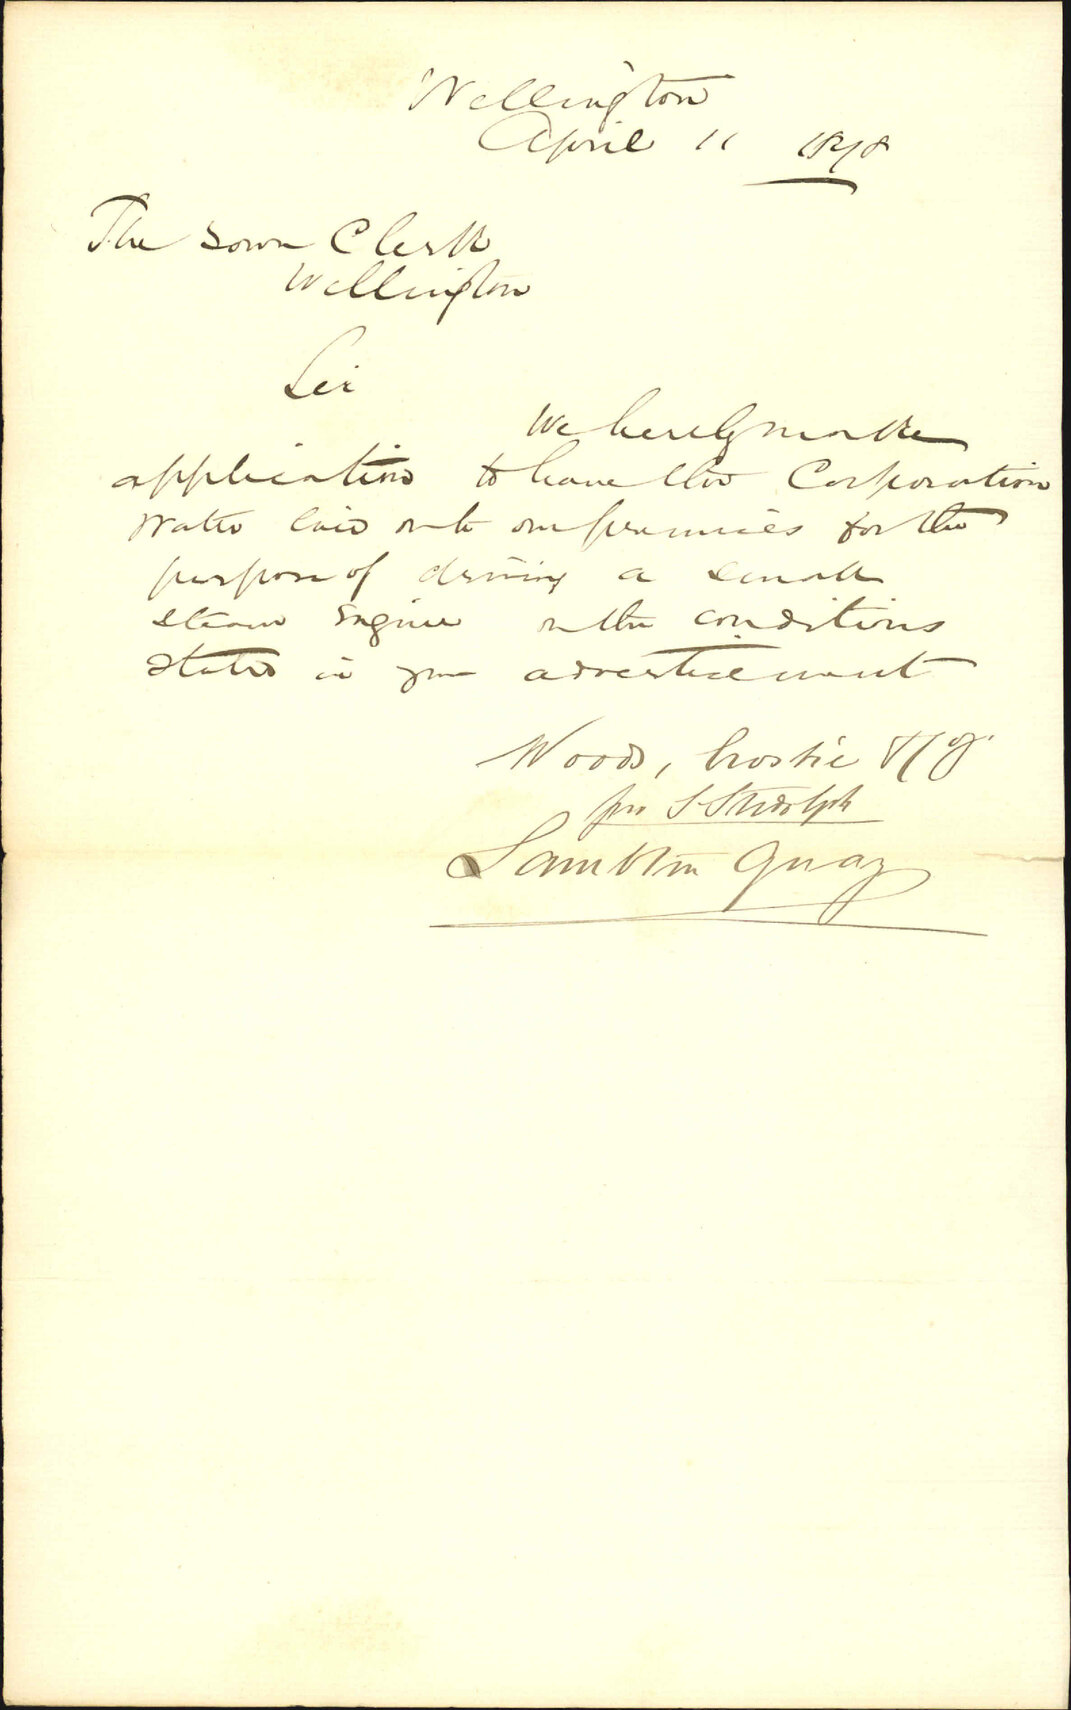 Wellington
April 11 1878
The Town Clerk
Wellington
Sir
We hereby make
application to have the Corporation
Water laid on to our premises for the
purpose of driving a small
steam Engine on the conditions
stated in your advertisement
Woods, Crosbie & Co.
pro
Lambton Quay